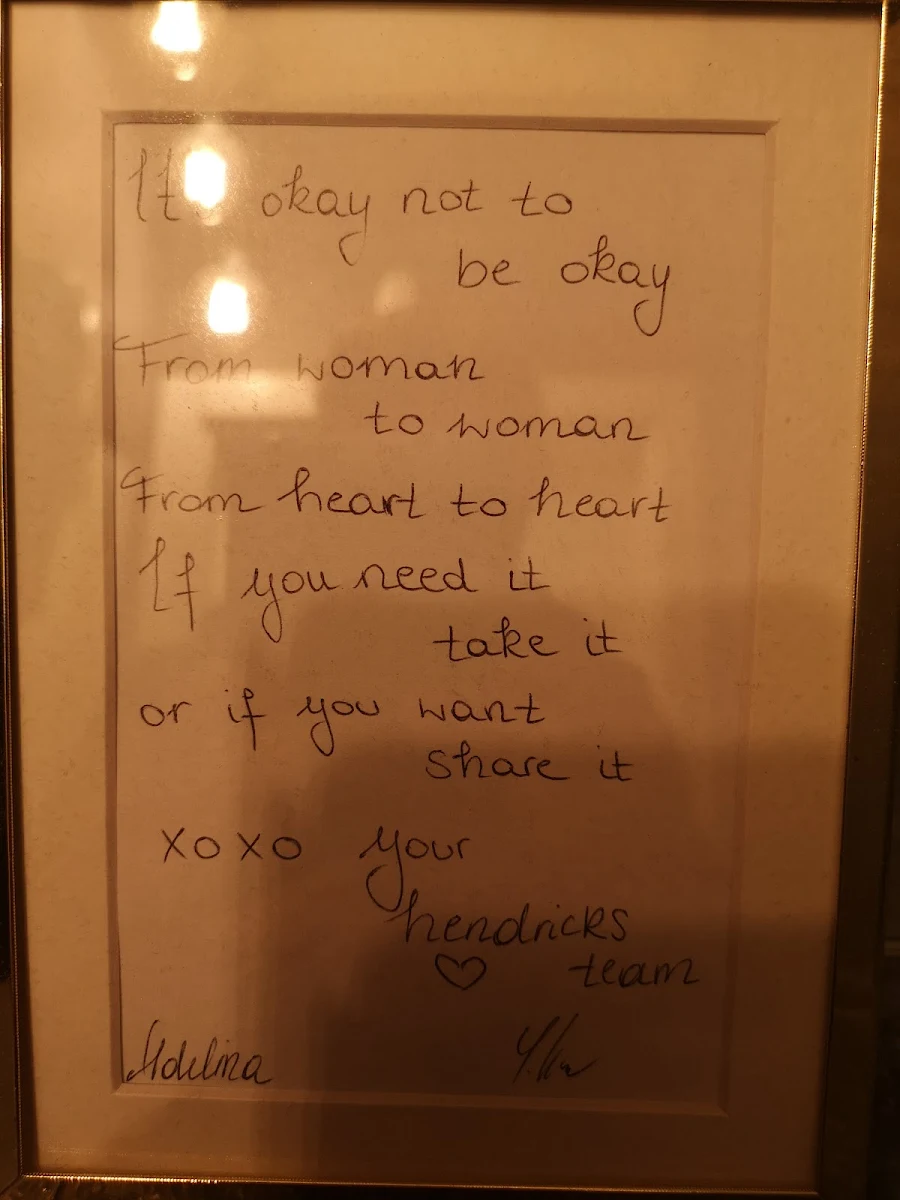 It's okay not to
be okay
From woman
to woman
From heart to heart
If you need it
take it
or if you want
share it
xoxo your
hendricks
♡ team
Adelina